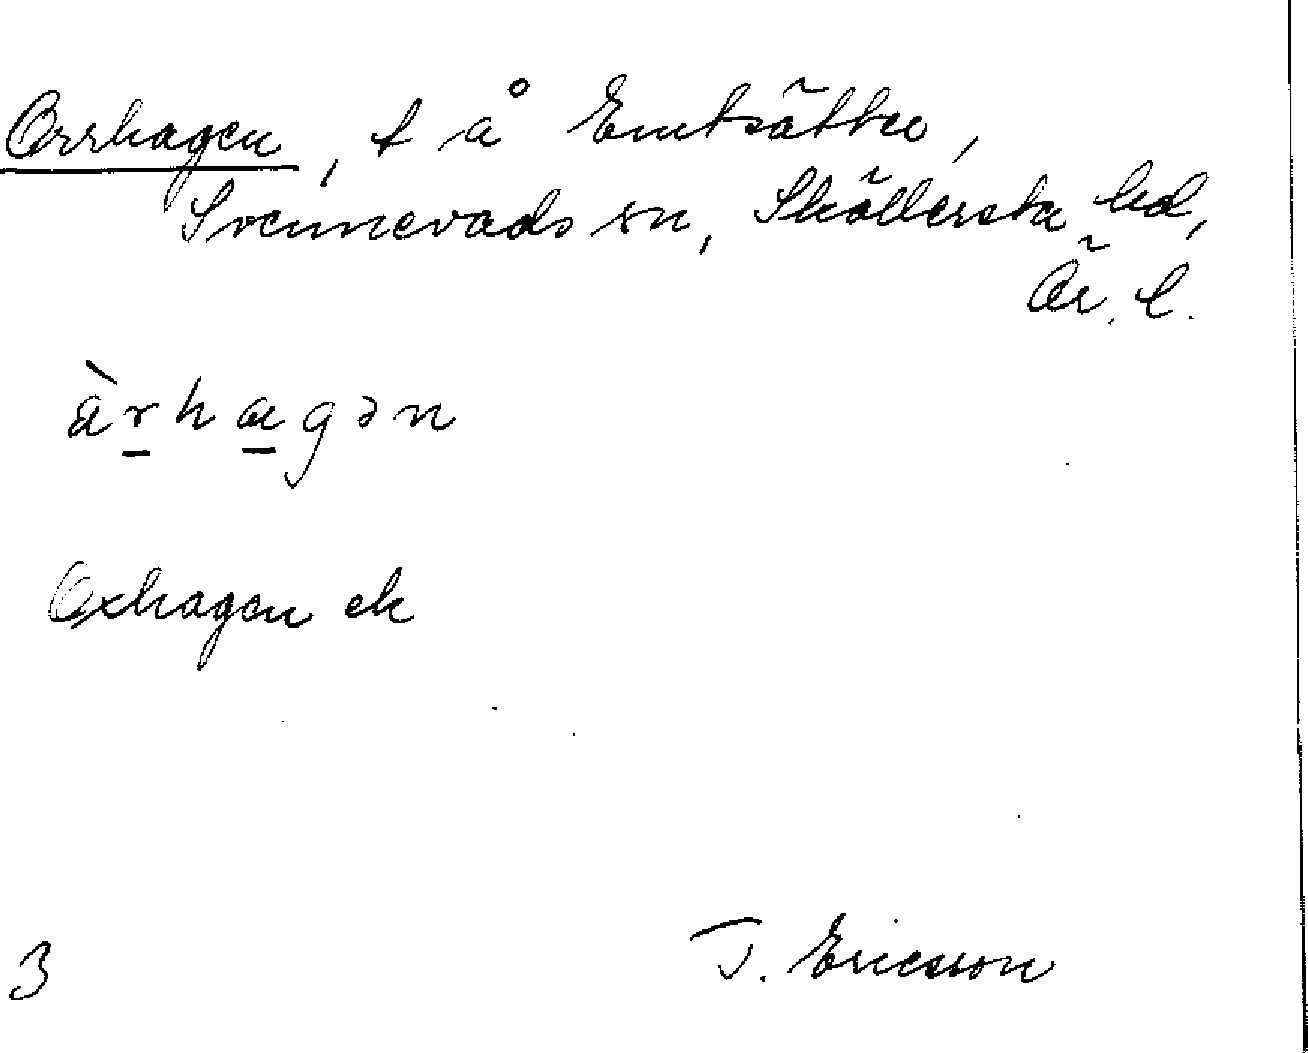 Orrhagen, t å Emtsätter,
Svennevads sn, Sköllersta hd,
Ör. l.
àrhagən
Oxhagen ek
3
T. Ericsson